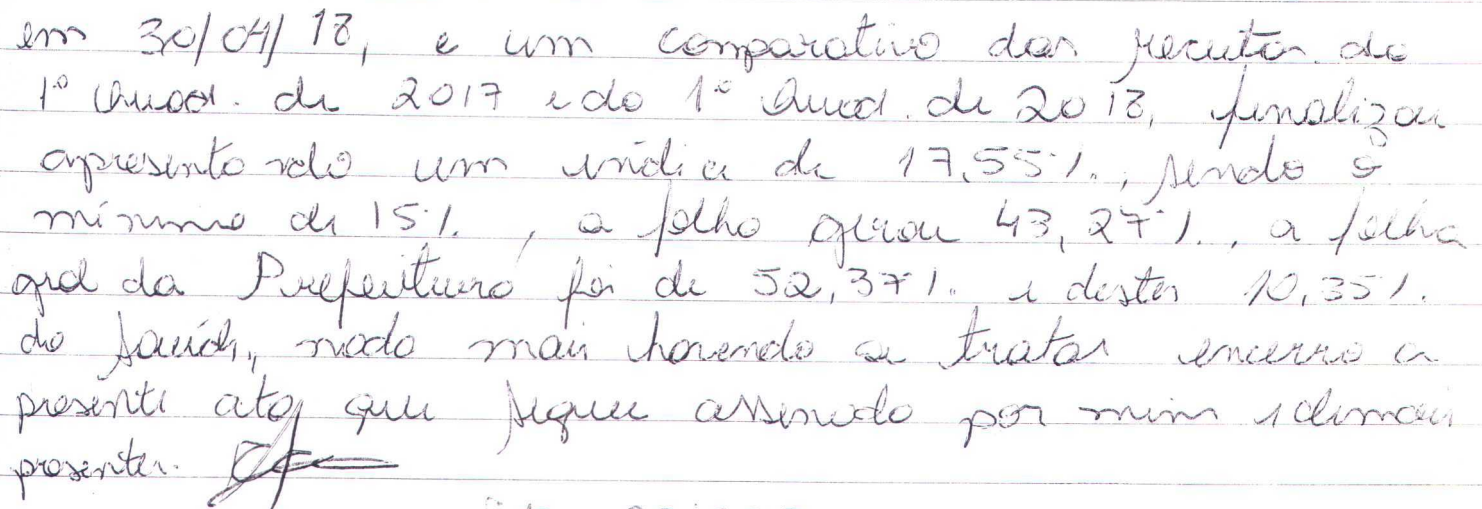 em 30/04/18, e um comparativo das receitas do
1º Quad. de 2017 e do 1º Quad. de 2018, finalizou
apresentando um índice de 17,55%, sendo o
mínimo de 15%, a folha gerou 43,27%, a folha
geral da Prefeitura foi de 52,37% e destes 10,35%
da saúde, nada mais havendo a tratar encerro a
presente ata que segue assinada por mim e demais
presentes.